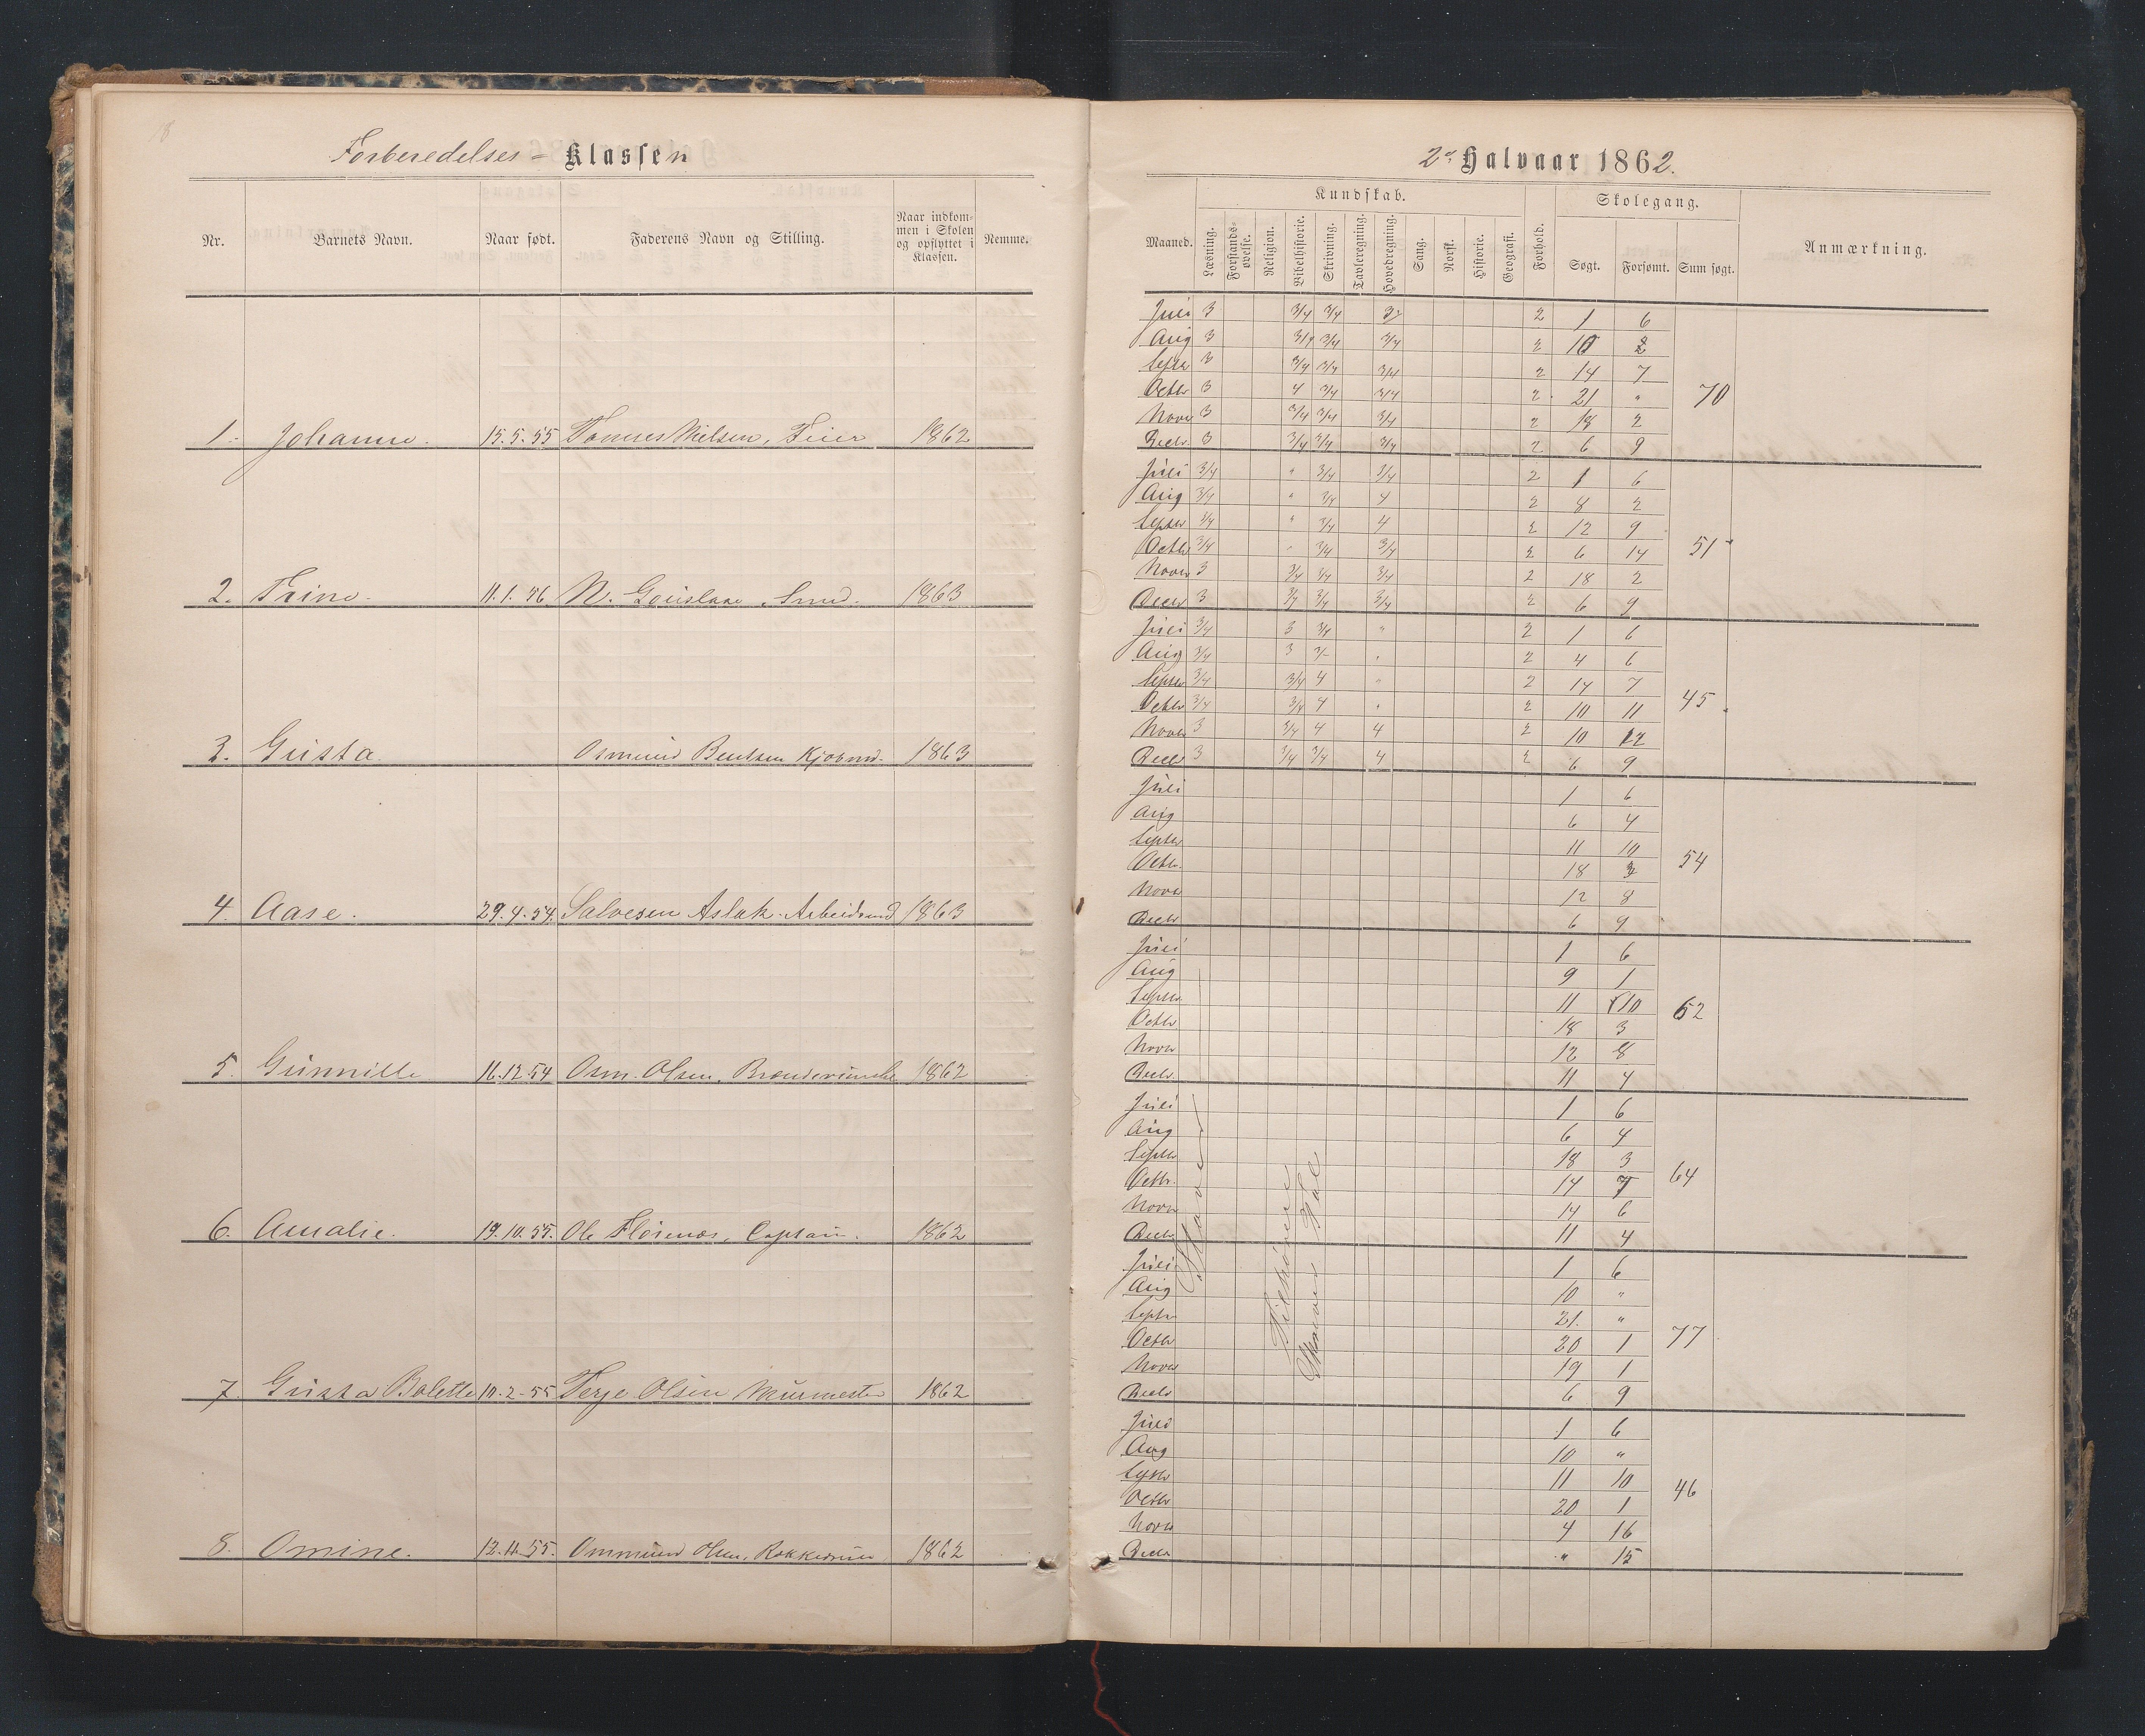 18
Forberedelses-Klassen
Nr. Barnets Navn. Naar født. Faderens Navn og Stilling. Naar indkommen i Skolen og opflyttet i Klassen. Nemme.
1. Johanne. 15.5.55 Tønnes Nielsen, Feier 1862
2. Trine. 11.1.56 N. Gouslaae, Smed. 1863
3. Gusta. Osmund Bentsen Kjøbmd. 1863
4. Aase. 29.4.54. Salvesen Aslak. Arbeidsmd 1863
5. Gunnille 16.12.54 Osm. Olsen, 1862
6. Amalie. 19.10.55. Ole Flørenæs, Captain. 1862
7. Gusta Bolette 10.2.55 Terje Olsen Murmester 1862
8. Omine. 12.11.55. Ommund Olsen, 1862
2d Halvaar 1862.
Kundskab. Skolegang.
Maaned. Læsning. Forstandsøvelse. Religion. Bibelhistorie. Skrivning. Tavleregning. Hovedregning. Sang. Norsk. Historie. Geografi. Forhold. Søgt. Forsømt. Sum søgt. Anmærkning.
Juli 3 3/4 3/4 3 2 1 6
Aug 3 3/4 3/4 3/4 2 10 2
Septbr 3 3/4 3/4 3/4 2 14 7
Octbr 3 4 3/4 3/4 2 21 " 70
Novbr 3 3/4 3/4 3/4 2 18 2
Decbr. 3 3/4 3/4 3/4 2 6 9
Juli 3/4 " 3/4 3/4 2 1 6
Aug 3/4 " 3/4 4 2 8 2
Septbr 3/4 " 3/4 4 2 12 9
Octbr 3/4 " 3/4 3/4 2 6 14 51
Novbr 3 3/4 3/4 3/4 2 18 2
Decbr 3 3/4 3/4 3/4 2 6 9
Juli 3/4 3 3/4 " 2 1 6
Aug 3/4 3 3/- " 2 4 6
Septbr 3/4 3/4 4 " 2 14 7
Octbr 3/4 3/4 4 " 2 10 11 45
Novbr 3 3/4 4 4 2 10 12
Decbr 3 3/4 3/4 4 2 6 9
Juli 1 6
Aug 6 4
Septbr 11 10
Octbr. 18 3 54
Novbr 12 8
Decbr 6 9
Juli 1 6
Aug 9 1
Septbr 11 10
Octbr 18 3 62
Novbr 12 8
Decbr. 11 4
Juli 1 6
Aug 6 4
Septbr 18 3
Octbr. 14 7 64
Novbr 14 6
Decbr. 11 4
Juli 1 6
Aug 10 "
Septbr 21. "
Octbr 20 1 77
Novbr 19 1
Decbr 6 9
Juli 1 6
Aug 10 "
Septbr 11 10
Octbr 20 1 46
Novbr 4 16
Decbr " 15